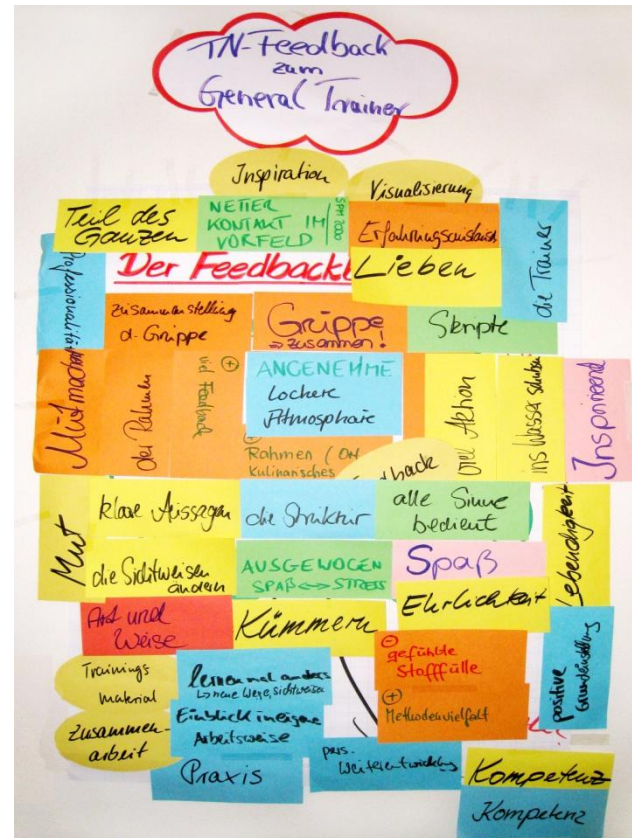 TN-Feedback
zum
General Trainer
Inspiration
Visualisierung
Teil des
Ganzen
NETTER
KONTAKT IM
VORFELD
Erfahrungsaustausch
die Trainer
Professionalität
Der Feedback
Lieben
Zusammenstellung
d. Gruppe
Gruppe
→ zusammen!
Skripte
Mutmacher
der Rahmen
viel Feedback
ANGENEHME
Lockere
Atmosphäre
+
Rahmen / Ort
kulinarisches
back
viel Aktion
ins Wasser
Inspirierend
Mut
klare Aussagen
die Struktur
alle Sinne
bedient
Lebendigkeit
die Sichtweisen
ändern
AUSGEWOGEN
SPAß ↔ STRESS
Spaß
Ehrlichkeit
Art und
Weise
Kümmern
-
gefühlte
Stofffülle
+
Methodenvielfalt
positive
Grundeinstellung
Trainings
material
lernen mal anders
↳ neue Wege, Sichtweisen
Zusammen-
arbeit
Einblick in eigene
Arbeitsweise
Praxis
pers.
Weiterentwicklung
Kompetenz
Kompetenz